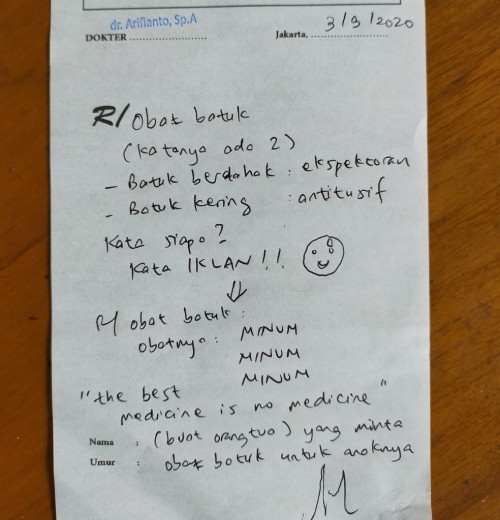 dr. Arifianto, Sp.A
DOKTER ........................
Jakarta, ........................ 3/3/2020
R/ Obat batuk
(katanya ada 2)
- Batuk berdahak : ekspektoran
- Batuk kering : antitusif
Kata siapa?
Kata IKLAN!!
⇓
R/ obat batuk :
obatnya : MINUM
MINUM
MINUM
"the best
medicine is no medicine"
Nama : (buat orangtua) yang minta
Umur : obat batuk untuk anaknya